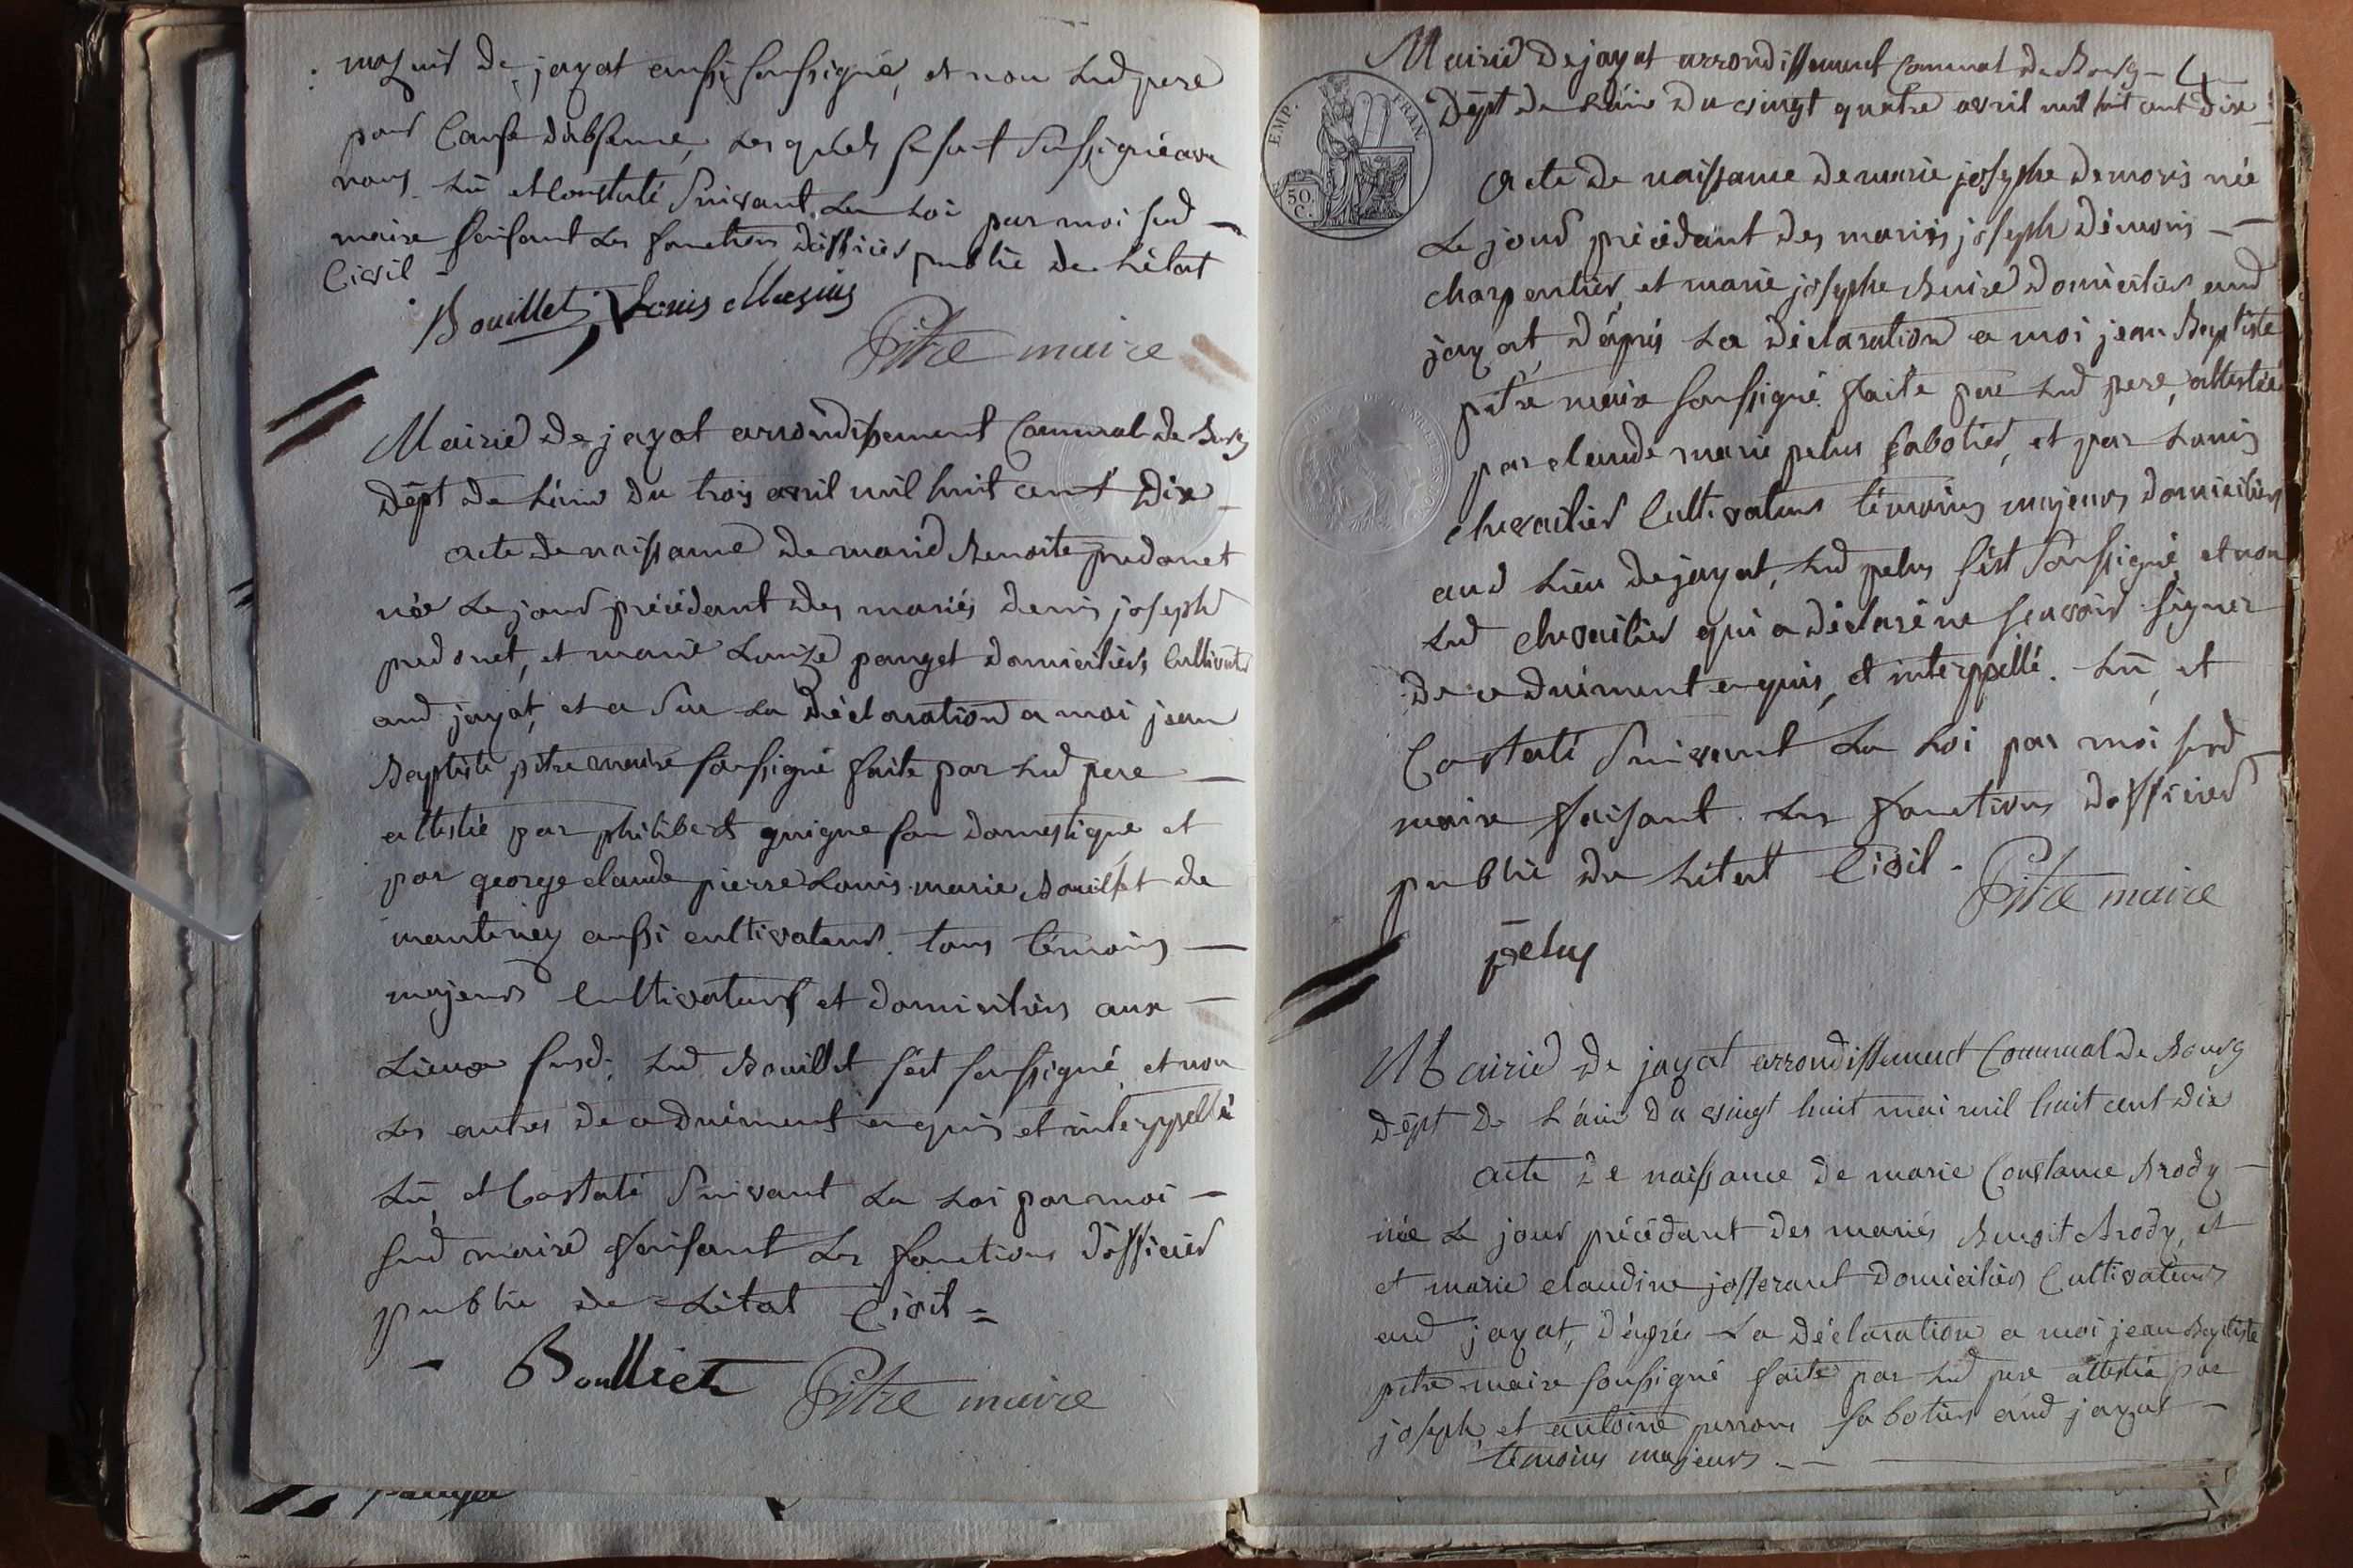 mazuis de jayat aussi soussigné, et non lud. pere
pour cause d'absence, les quels se sont soussigné avec
nous. Lû et constaté suivant la loi par moi sud —
maire faisant les fonctions d'officier public de l'état
Civil -
Bouillet, Louis Mazuis
Pitre maire
Mairie de jayat arrondissement Communal de Bourg
dépt de l'ain du trois avril mil huit cent dix —
acte de naissance de marie Benoite predonet
née le jour précédant des mariés denis joseph
predonet, et marie Louize panget domiciliés cultivateurs
aud jayat, et a sur la déclaration a moi jean
Baptiste pitre maire soussigné faite par lud pere —
attestée par philibert guigue son domestique et
par george claude pierre Louis marie Bouillet de
mantenay aussi cultivateur. tous témoins —
majeurs cultivateurs et domiciliés aux —
Lieux susd; lud Bouillet s'est soussigné, et non
les autres de ce duement enquis et interppellé
Lû, et Costaté suivant la Loi par moi —
sud maire faisant les fonctions d'officier
public de L'état Civil =
- Boulliet Pitre maire
Mairie de jayat arrondissement Communal de Bourg — 4
EMP. FRAN.
50. C.
dépt de L'ain du vingt quatre avril mil huit cent dix
acte de naissance de marie josephe demoris née
Le jour précédant des mariés joseph démoris —
charpentier, et marie josephe Buire domiciliés aud
jayat, d'après La déclaration a moi jean Baptiste
pitre maire soussigné faite par lud pere, attestée
par claude marie pelus sabotier, et par Louis
chevailier Cultivateur témoins majeurs domiciliés
aud Lieu de jayat, lud pelus s'est soussigné, et non
lud chevailier qui a déclaré ne scavoir signer
de ce duëment enquis, et interppellé. Lû, et
Costaté suivant La Loi par moi susd —
maire faisant les fonctions d'officier
public de L'état Civil - Pitre maire
pelus
Mairie de jayat arrondissement Communal de Bourg
dépt de L'ain du vingt huit mai mil huit cent dix
acte de naissance de marie Constance Brody —
née le jour précédant des mariés Benoit Brody, et
et marie claudine josserant domiciliés Cultivateurs
aud jayat, d'après La déclaration a moi jean Baptiste
pitre maire soussigné faite par lud pere attestée par
joseph, et antoine perron sabotiers aud jayat —
témoins majeurs. —